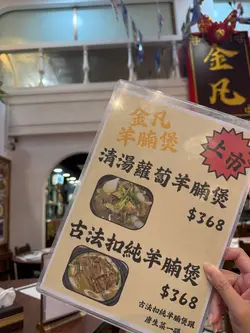 金凡
金凡
羊腩煲
上市
清湯蘿蔔羊腩煲
$368
古法扣純羊腩煲
$368
古法扣純羊腩煲跟
唐生菜一碟